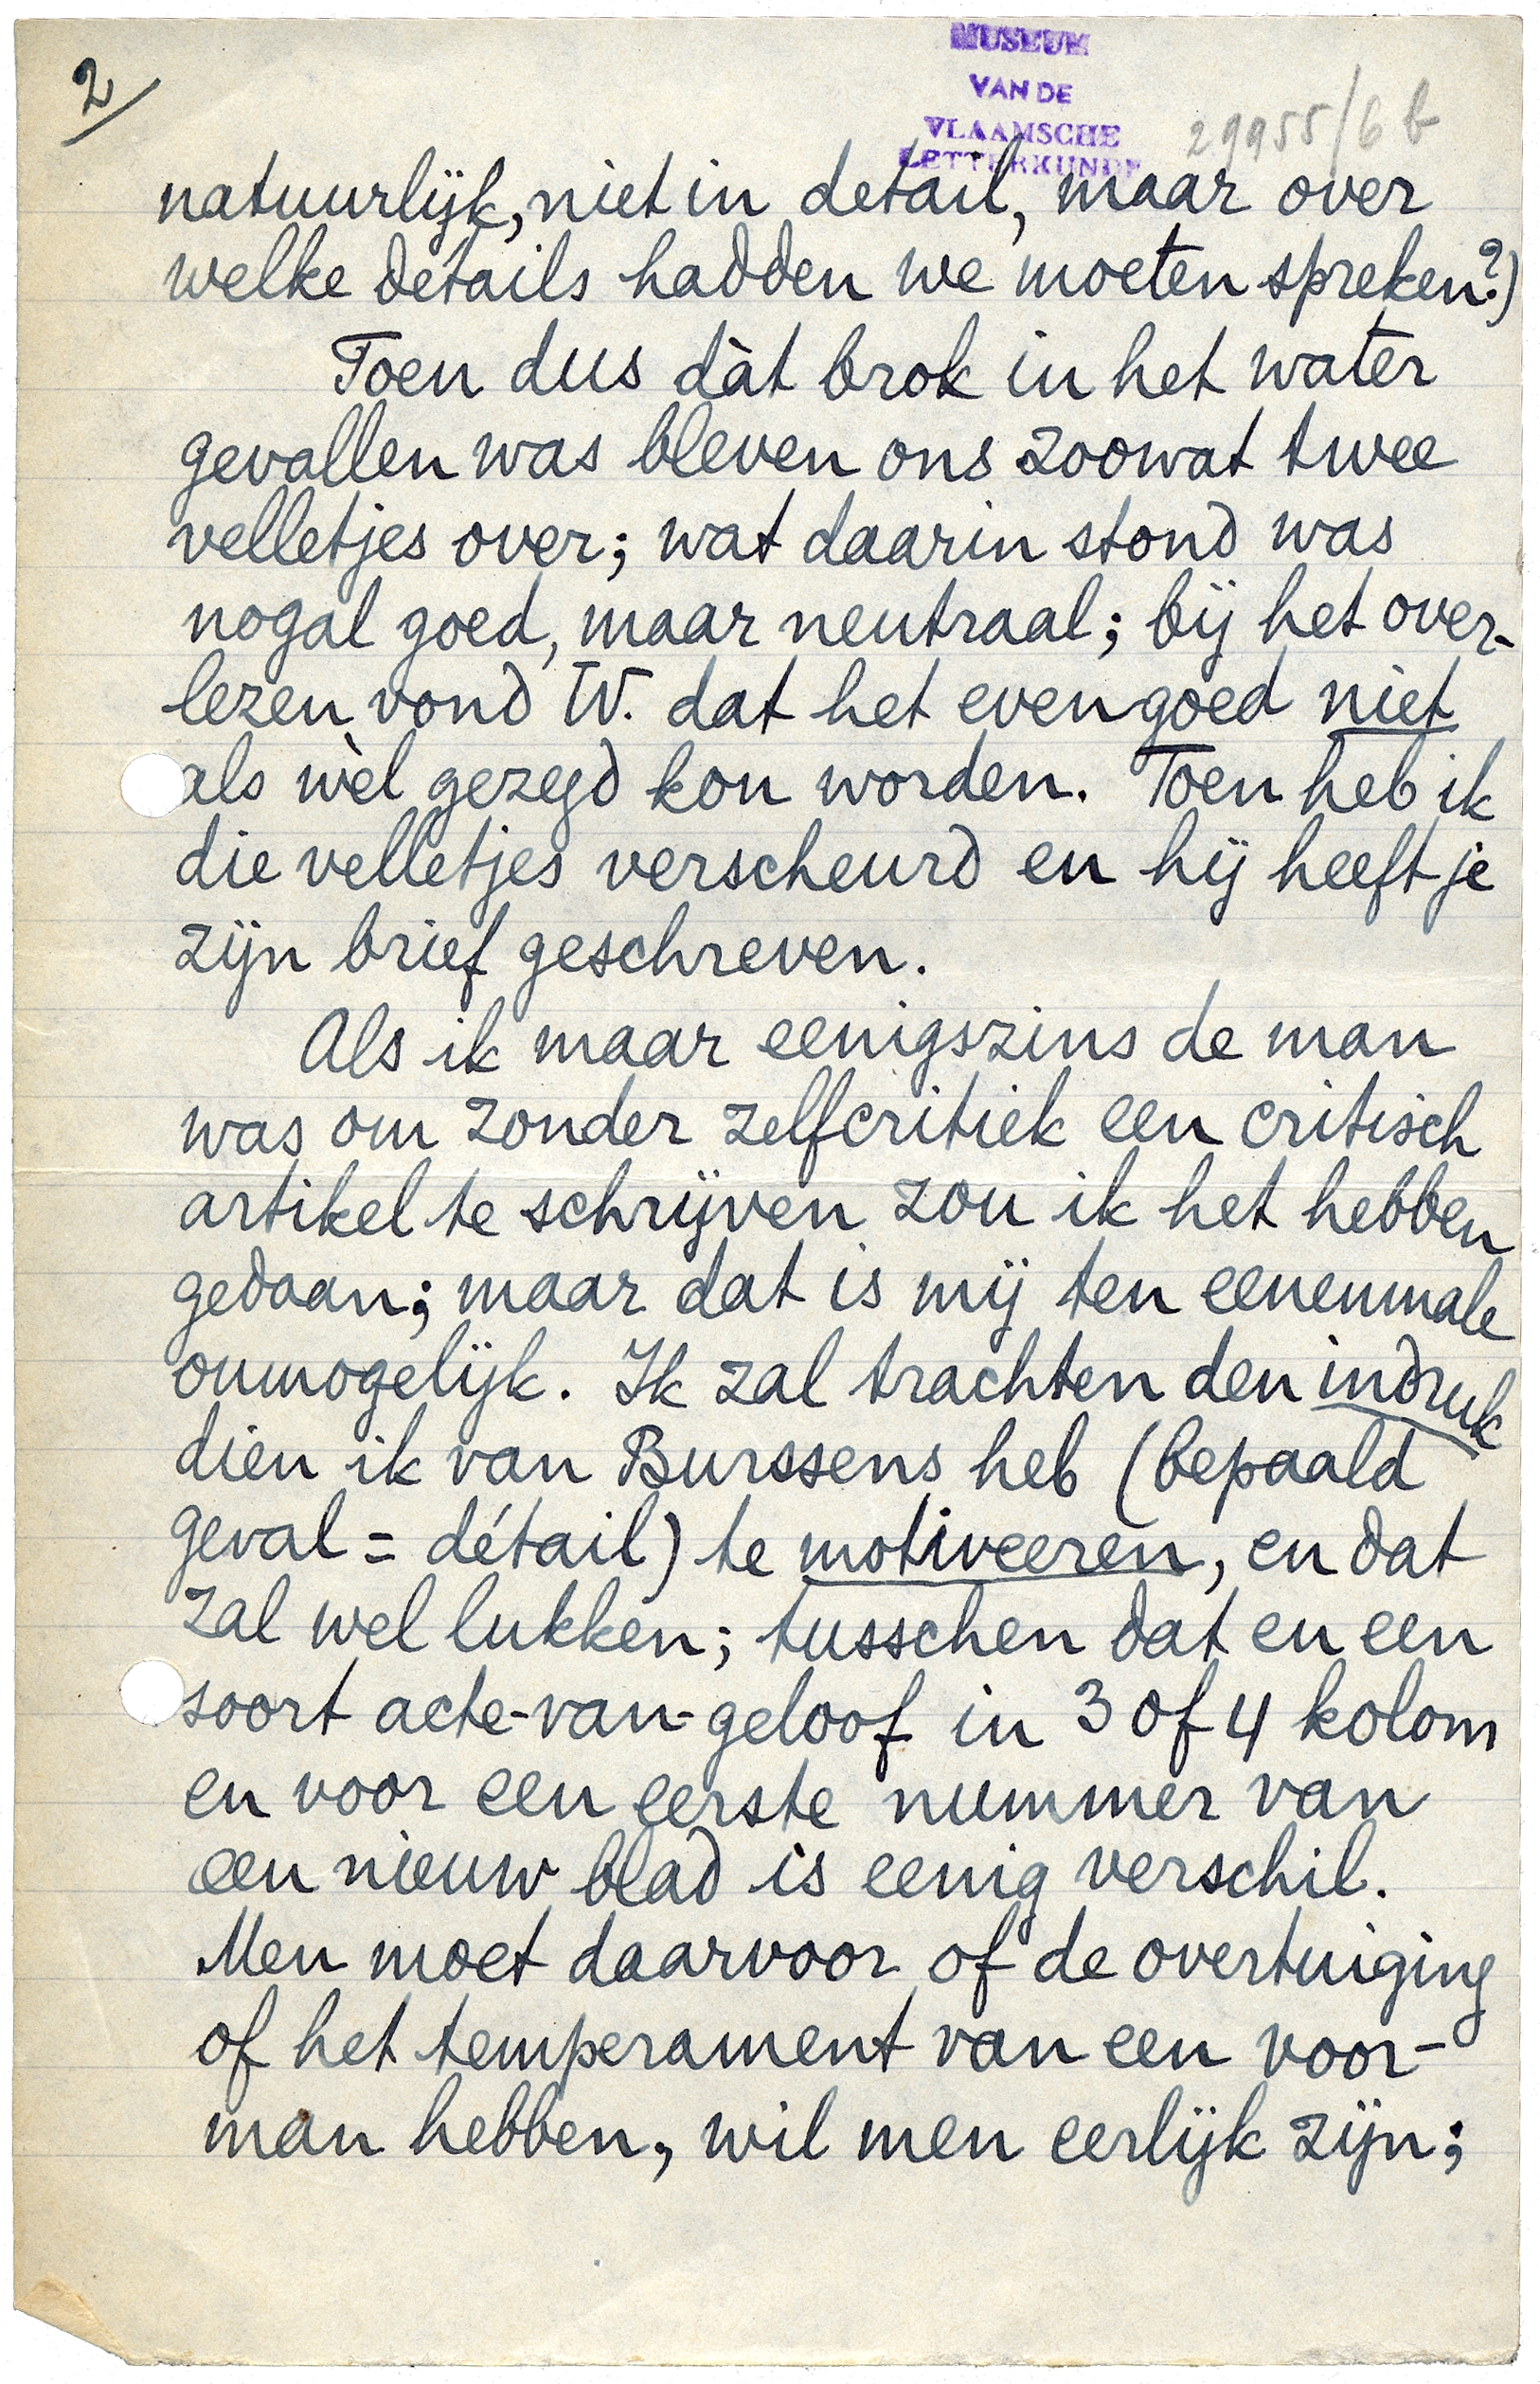 2/
MUSEUM
VAN DE
VLAAMSCHE
LETTERKUNDE
29955/6 b
natuurlijk, niet in detail, maar over
welke détails hadden we moeten spreken?)
Toen dus dàt brok in het water
gevallen was bleven ons zoowat twee
velletjes over; wat daarin stond was
nogal goed, maar neutraal; bij het over-
lezen vond W. dat het evengoed niet
als wèl gezegd kon worden. Toen heb ik
die velletjes verscheurd en hij heeft je
zijn brief geschreven.
Als ik maar eenigszins de man
was om zonder zelfcritiek een critisch
artikel te schrijven zou ik het hebben
gedaan; maar dat is mij ten eenenmale
onmogelijk. Ik zal trachten den indruk
dien ik van Burssens heb (bepaald
geval = détail) te motiveeren, en dat
zal wel lukken; tusschen dat en een
soort acte-van-geloof in 3 of 4 kolom
en voor een eerste nummer van
een nieuw blad is eenig verschil.
Men moet daarvoor of de overtuiging
of het temperament van een voor-
man hebben, wil men eerlijk zijn;